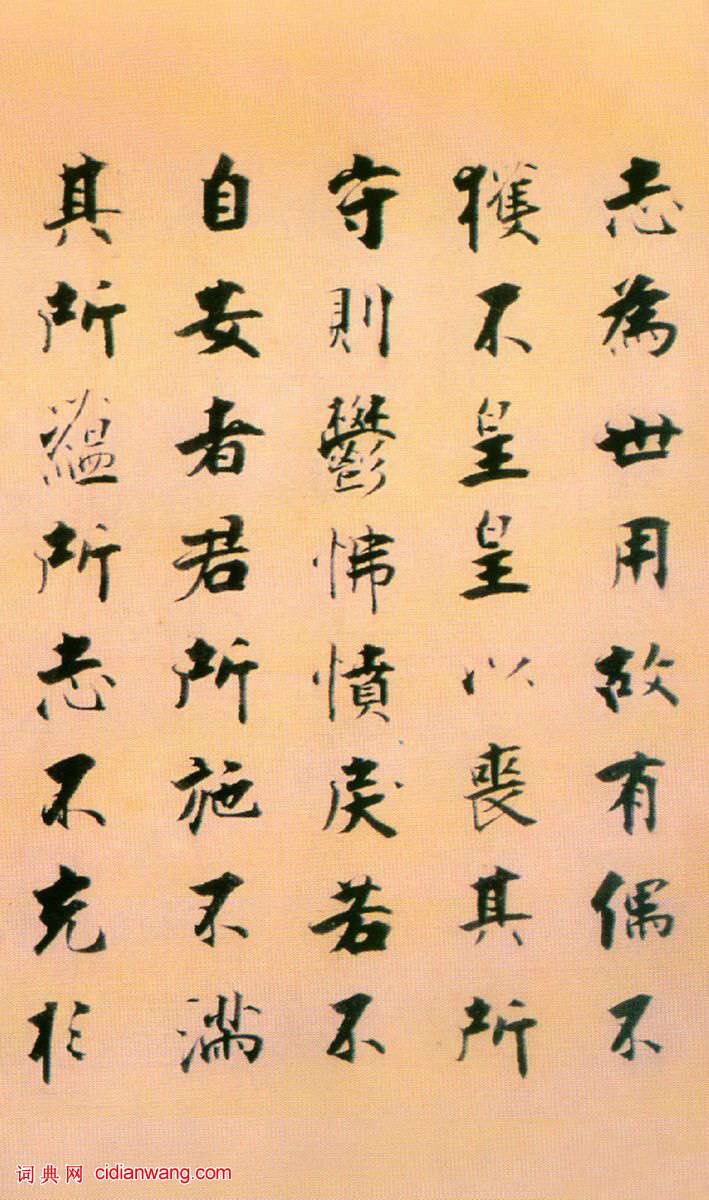 志為世用故有偶不
獲不皇皇以喪其所
守則鬱怫憤戾若不
自安者君所施不滿
其所蘊所志不充於
词典网 cidianwang.com